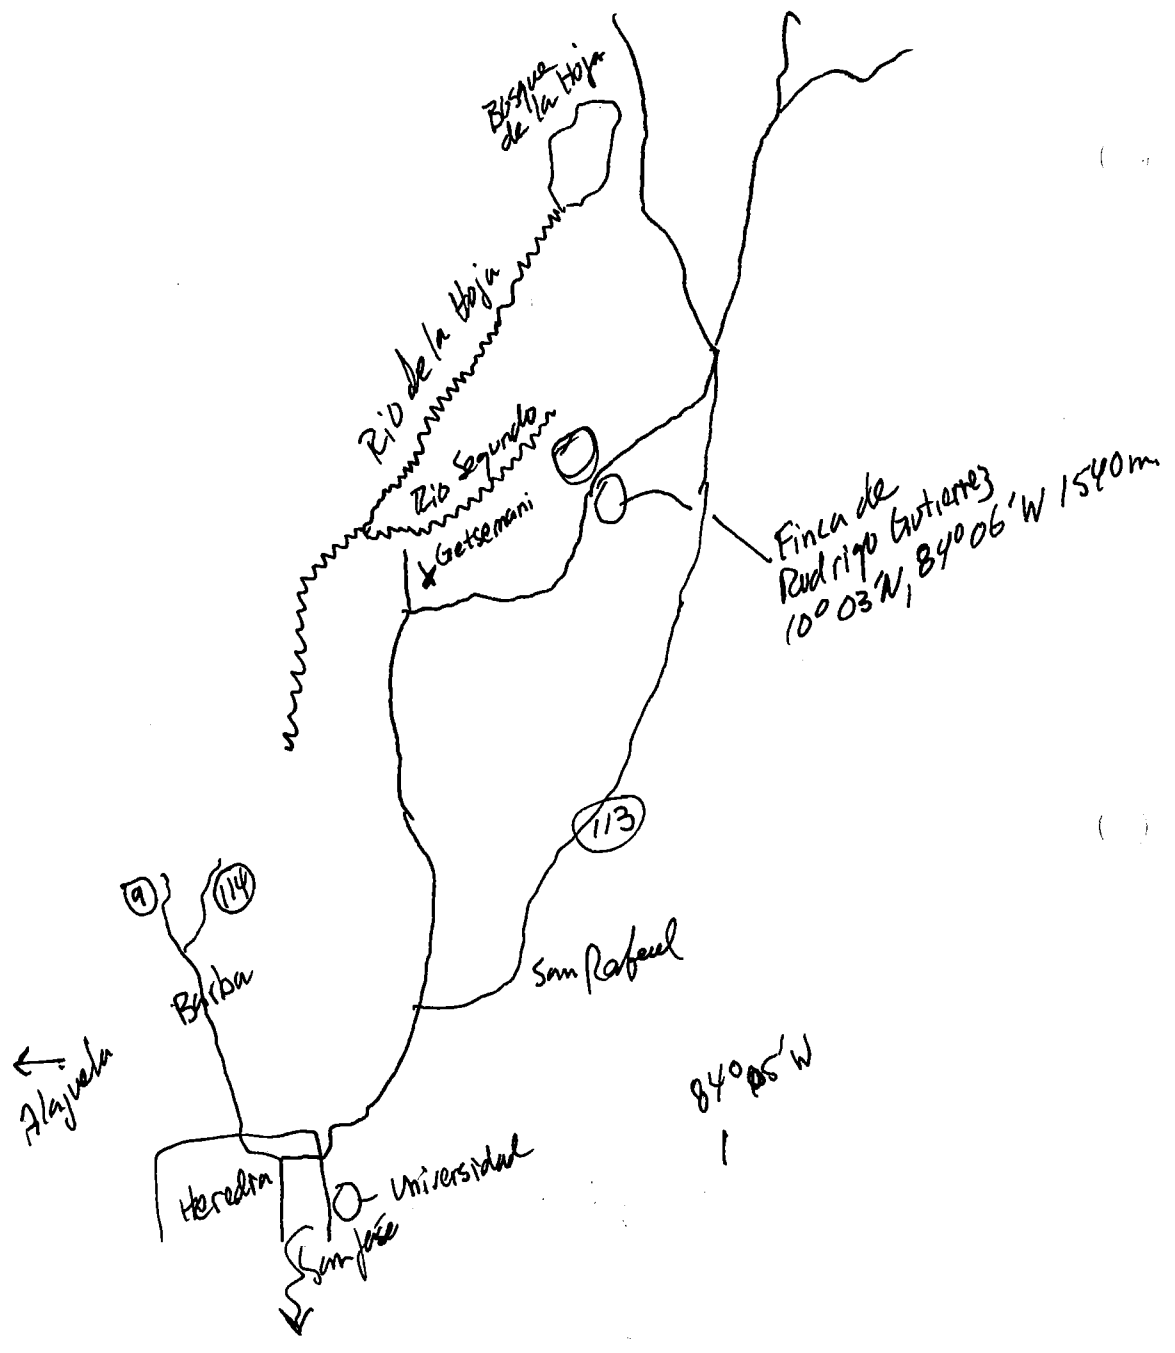 Bosque
de la Hoja
Rio de la Hoja
Rio Segundo
Getsemani
Finca de
Rodrigo Gutierrez
10° 03'N, 84° 06'W 1540m
113
9
114
San Rafael
Barba
Alajuela
84° 05' W
Heredia
Universidad
San José